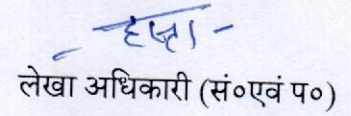 हस्ता-
लेखा अधिकारी (सं०एवं प०)